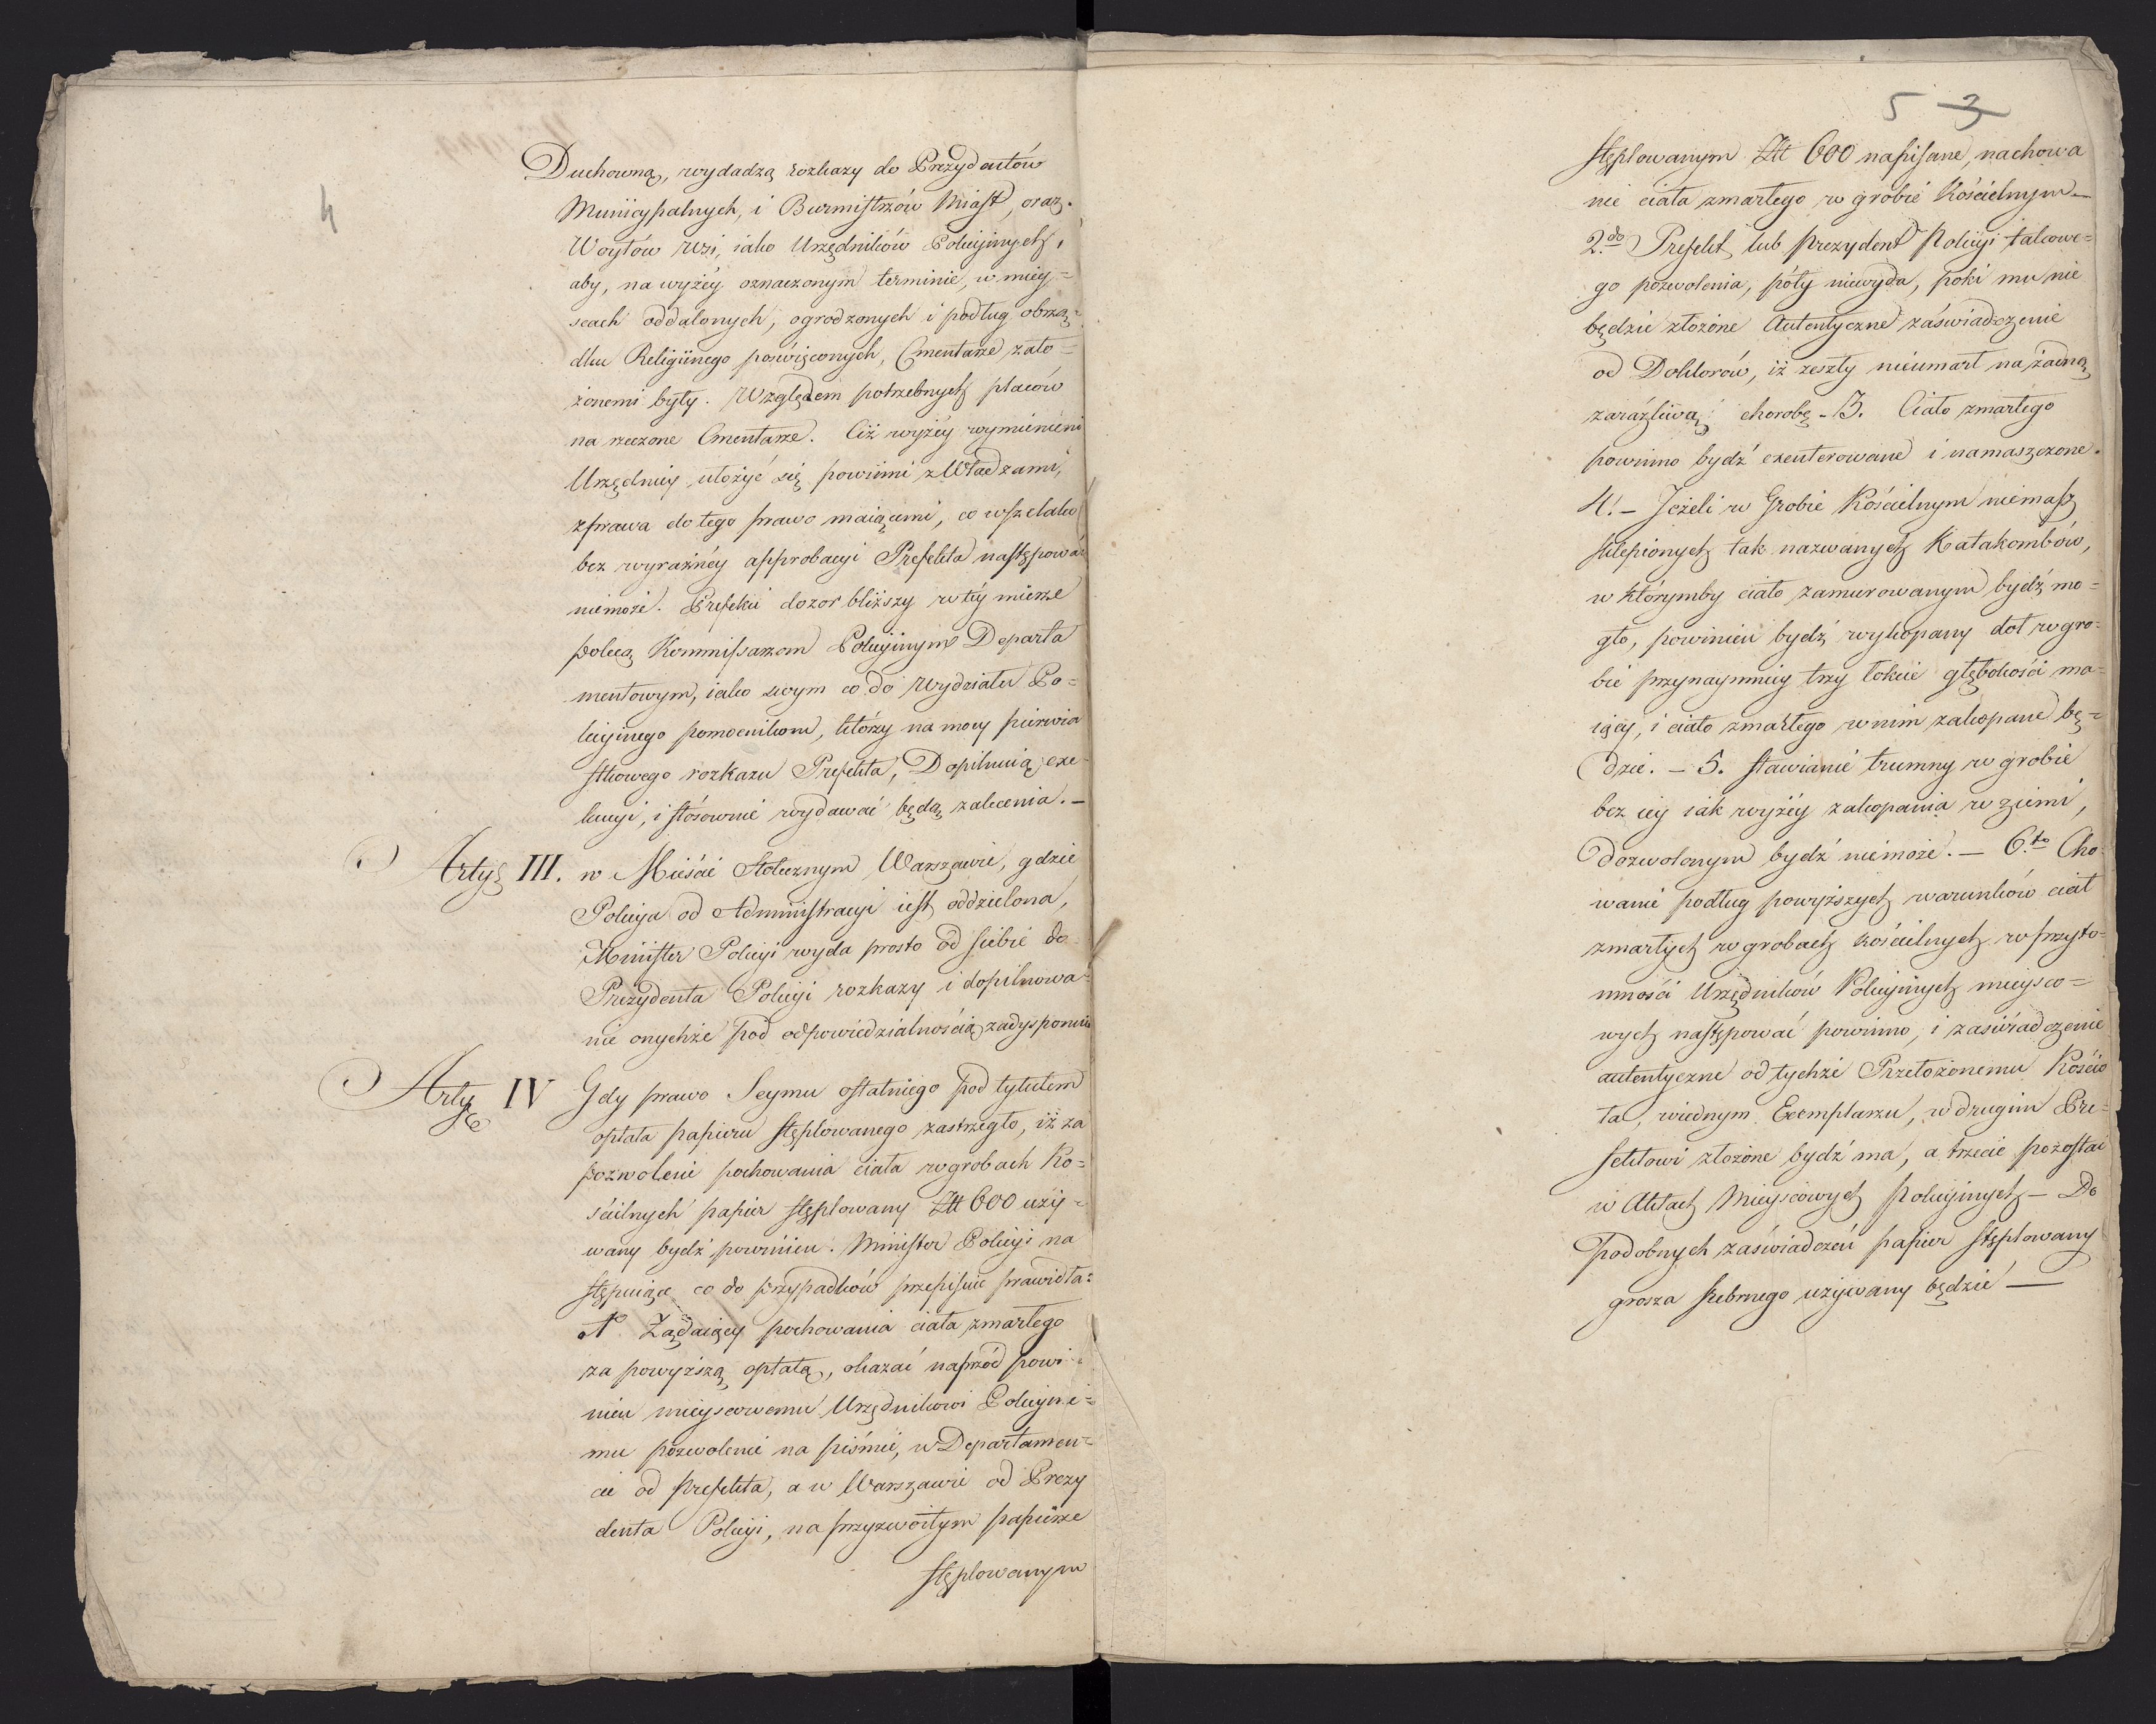 4
Duchowną, wydadzą rozkazy do Prezydentów
Municypalnych, i Burmistrzów Miast, oraz
Woytów Wsi, iako Urzędników Policyinych,
aby, na wyżéy oznaczonym terminie, w miey=
scach oddalonych, ogrodzonych i podług obrzą=
dku Religiinego poświęconych, Cmentarze zało=
żonemi były. Względem potrzebnych placów
na rzeczone Cmentarze. Ciż wyżéy wymienieni
Urzędnicy ułożyć się powinni z Władzami,
z prawa do tego prawo maiącemi, co wszelako
bez wyraźnéy approbacyi Prefekta następować
niemoże. Prefekci dozor bliższy w téy mierze
polecą Kommissarzom Policyinym Departa
mentowym, iako swym co do Wydziału Po=
licyinego pomocnikom, którzy na mocy pierwia
stkowego rozkazu Prefekta, Dopilnuią exe=
kucyi, i stósownie wydawać będą zalecenia. –
Arty: III. w Mieście Stołecznym Warszawie, gdzie
Policya od Administracyi iest oddzielona,
Minister Policyi wyda prosto od siebie do
Prezydenta Policyi rozkazy i dopilnowa=
nie onychże pod odpowiedzialnością zadysponuie
Arty IV Gdy prawo Seymu ostatniego pod tytułem
opłata papieru stęplowanego zastrzegło, iż za
pozwolenie pochowania ciała w grobach Ko=
ścielnych papier stęplowany Złł 600 uży=
wany bydź powinien. Minister Policyi na
stępuiące co do przypadków przepisuie prawidła:
1º Żądaiący pochowania ciała zmarłego
za powyższą opłatą, okazać naprzód powi=
nien mieyscowemu Urzędnikowi Policyine=
mu pozwolenie na piśmie, w Departamen=
cie od Prefekta, a w Warszawie od Prezy
denta Policyi, na przyzwoitym papierze
stęplowanym
5 3
stęplowanym Złł 600 napisane, na chowa
nie ciała zmarłego w grobie Kościelnym –
2.do Prefekt lub Prezydent Policyi takowe=
go pozwolenia, póty niewyda, poki mu nie
będzie złożone Autentyczne zaświadczenie
od Doktorów, iż zeszły nieumarł na żadną
zaraźliwą chorobę – 3. Ciało zmarłego
powinno bydź exenterowane i namaszczone.
4. – Jeżeli w Grobie Kościelnym niemasz
sklepionych tak nazwanych Katakombów,
w którymby ciało zamurowanym bydź mo=
gło, powinien bydź wykopany doł w gro=
bie przynaymniey trzy łokcie głębokości ma=
iący, i ciało zmarłego w nim zakopane bę=
dzie. – 5. stawianie trumny w grobie
bez iéy iak wyżéy zakopania w ziemi,
dozwolonym bydź niemoże. – 6.to Cho=
wanie podług powyższych warunków ciał
zmarłych w grobach kościelnych w przyto=
mności Urzędników Policyinych mieysco=
wych następować powinno, i zaświadczenie
autentyczne od tychże Przełożonemu Kościo
ła, w iednym Exemplarzu, w drugim Pre=
fektowi złożone bydź ma, a trzecie pozostać
w Aktach Mieyscowych Policyinych – Do
podobnych zaświadczeń papier stęplowany
grosza srebrnego używany będzie —